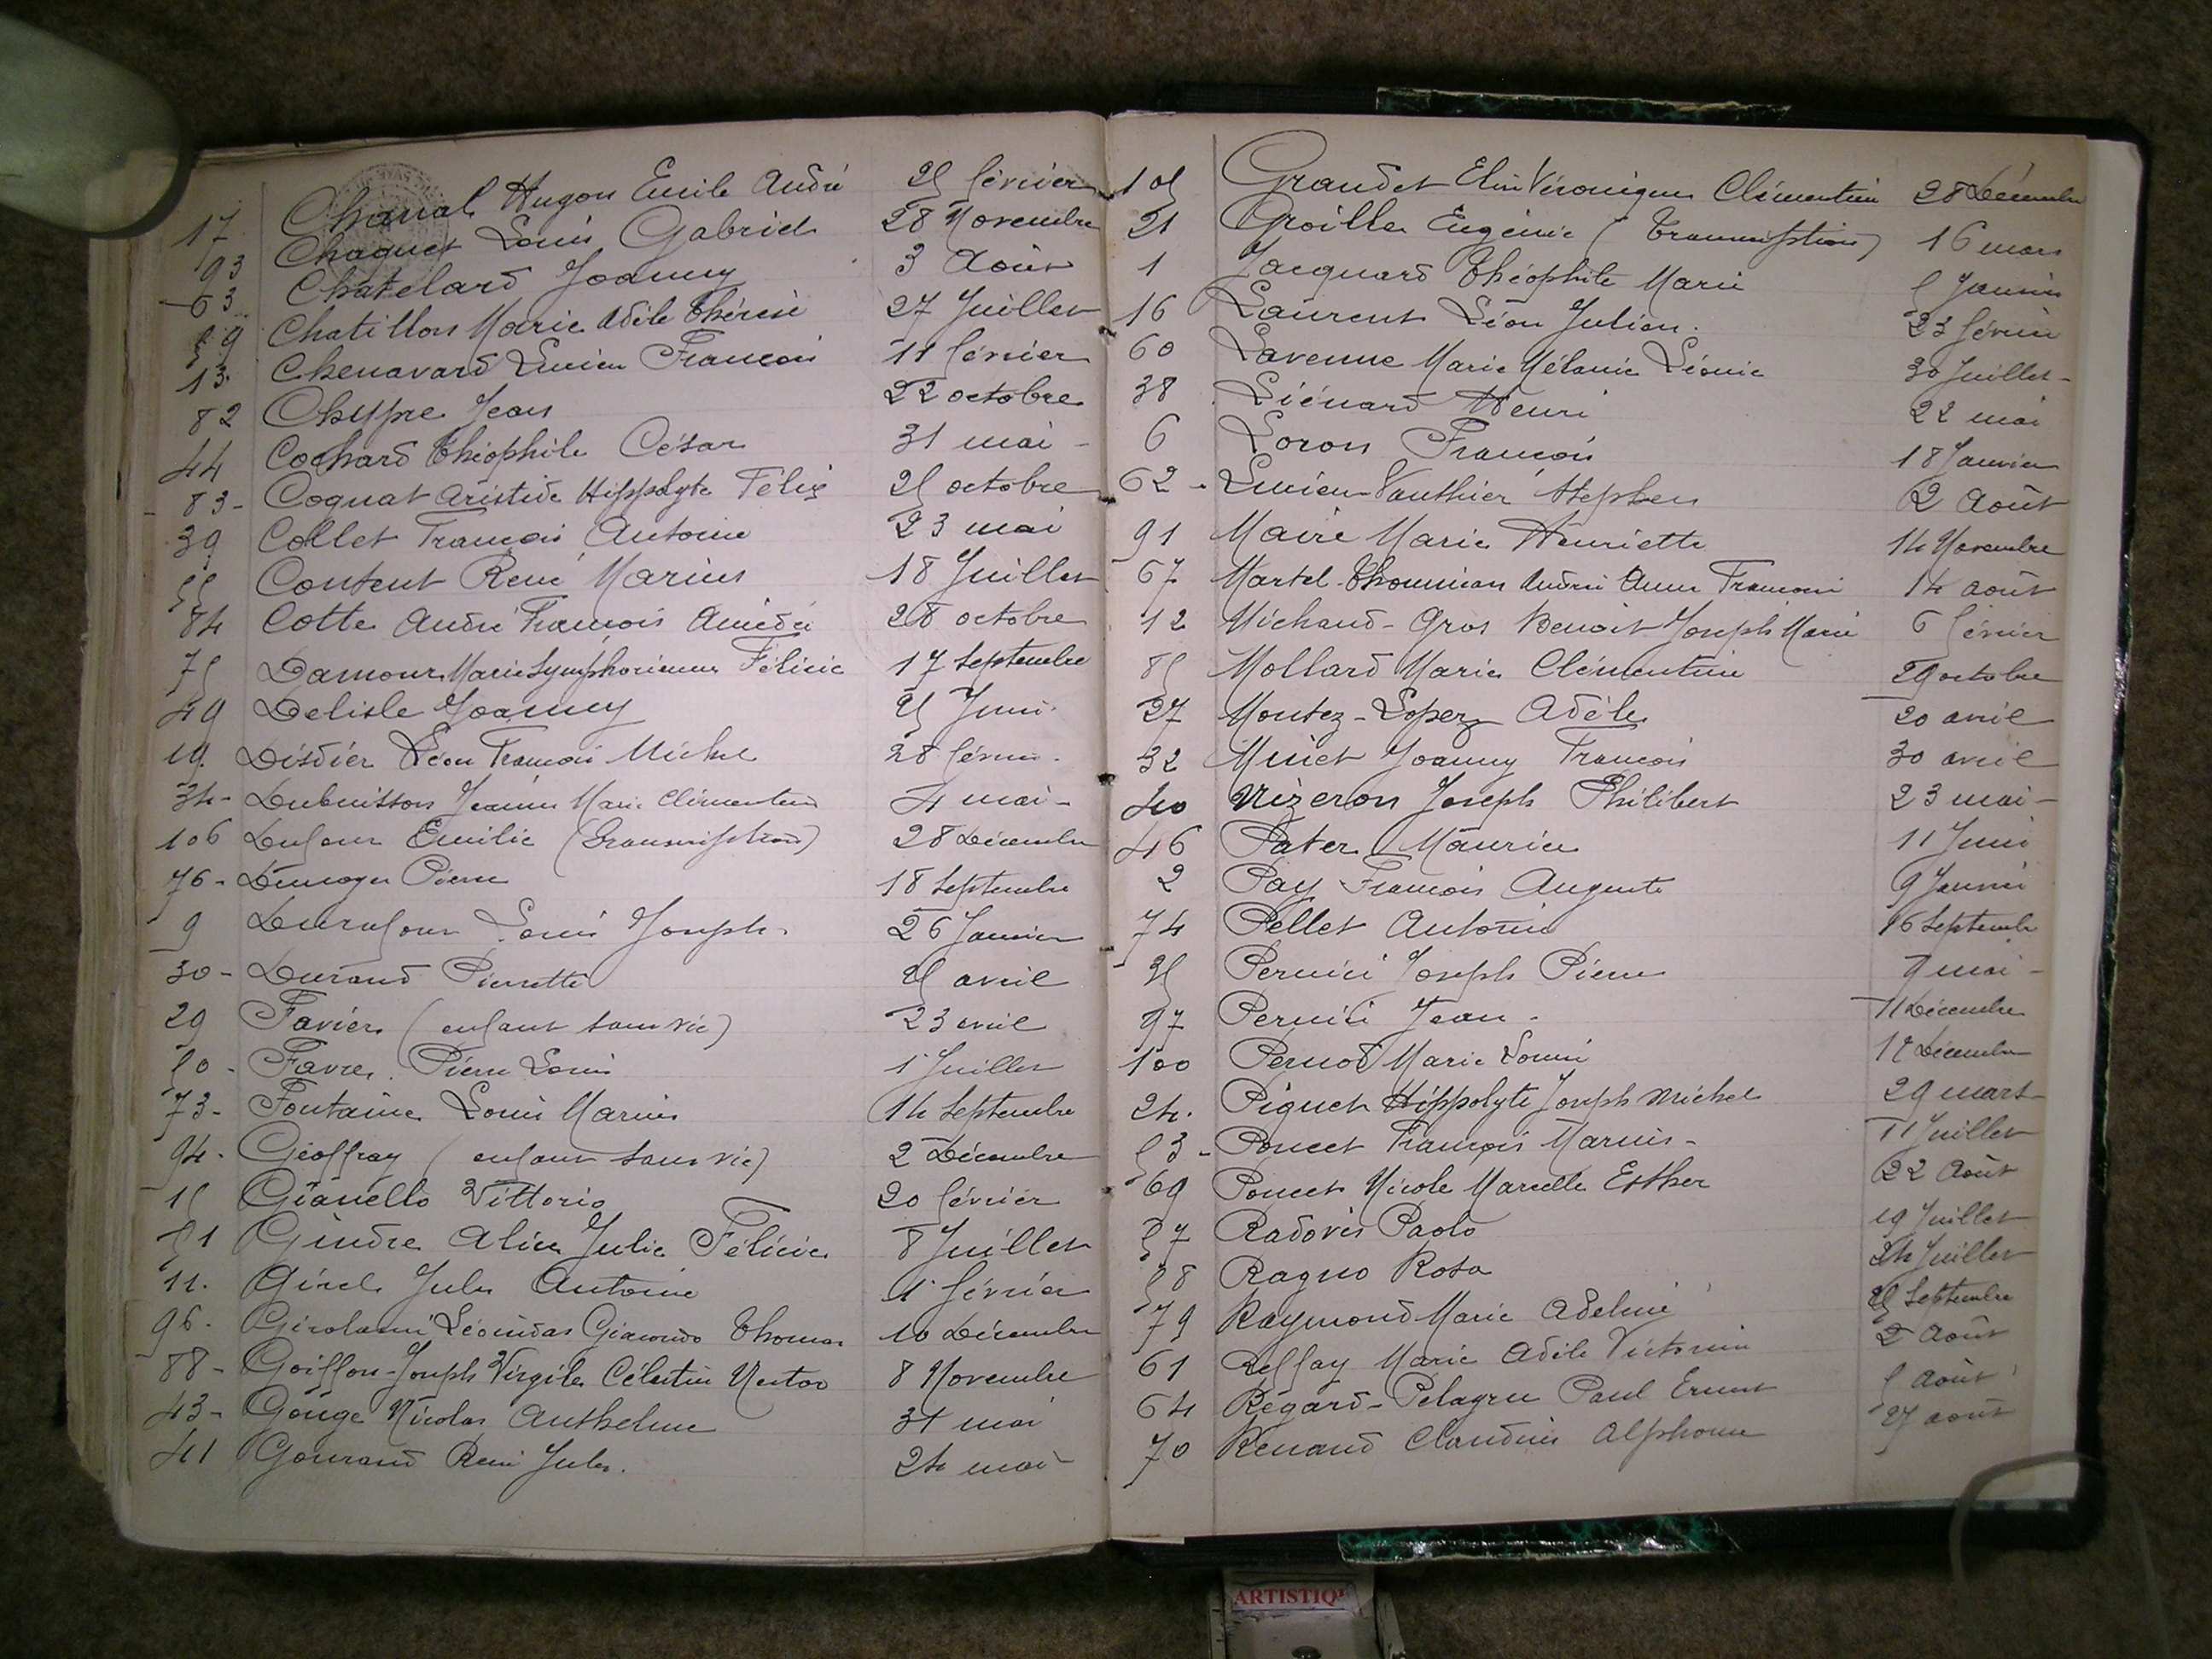 17 Charral Hugon Emile André 25 février
93 Chaquet Louis Gabriel 28 Novembre
63 Chatelard Joanny 3 Août
59 Chatillon Marie Adèle Thérèse 27 Juillet
13 Chenavard Lucien François 11 février
82 Chypre Jean 22 octobre
44 Cochard Théophile César 31 mai
83 Cognat Aristide Hippolyte Félix 25 octobre
39 Collet François Antoine 23 mai
55 Content René Marius 18 Juillet
84 Cotte André François Amédée 28 octobre
75 Damour Marie Symphorienne Félicie 17 Septembre
49 Delisle Joanny 25 Juin
19 Disdier Léon François Michel 28 février
34 Dubuisson Jeanne Marie Clémentine 4 mai
106 Dufour Emilie (Transcription) 28 Décembre
76 Dumoger Pierre 18 Septembre
9 Durafour Louis Joseph 26 Janvier
30 Durand Pierrette 25 avril
29 Favier (enfant sans vie) 23 avril
50 Favre Pierre Louis 1 Juillet
73 Fontaine Louis Marius 14 Septembre
94 Geoffray (enfant sans vie) 2 Décembre
15 Gianello Vittorio 20 février
51 Gindre Alice Julie Félicie 8 Juillet
11 Girel Jules Antoine 1 février
96 Girolami Léonidas Giacondo Thomas 10 Décembre
88 Goiffon Joseph Virgile Célestin Nestor 8 Novembre
43 Gouge Nicolas Anthelme 31 mai
41 Gouraud René Jules 24 mai
105 Grandet Elise Véronique Clémentine 28 Décembre
21 Groille Eugénie (Transcription) 16 mars
1 Jacquard Théophile Marie 5 Janvier
16 Laurent Léon Julien 23 février
60 Lavenne Marie Mélanie Léonie 30 Juillet
38 Liénard Henri 22 mai
6 Loron François 18 Janvier
62 Lucien-Vauthier Stephen 2 Août
91 Maire Marie Henriette 14 Novembre
67 Martel-Thoumian Andrée Anne 14 août
12 Michaud-Gros Benoit Joseph Marie 6 février
85 Mollard Marie Clémentine 29 octobre
27 Montez-Lopez Adèle 20 avril
32 Muset Joanny François 30 avril
40 Nizeron Joseph Philibert 23 mai
46 Pater Maurice 11 Juin
2 Pay François Auguste 9 Janvier
74 Pellet Antonin 16 Septembre
35 Pernici Joseph Pierre 7 mai
97 Pernici Jean 11 Décembre
100 Pernod Marie Louise 12 Décembre
24 Piguet Hippolyte Joseph Michel 29 mars
53 Poncet François Marius 11 Juillet
69 Poncet Nicole Marcelle Esther 22 Août
57 Radovis Paolo 19 Juillet
58 Ragno Rosa 24 Juillet
79 Raymond Marie Adeline 25 Septembre
61 Reffay Marie Adèle Victorine 2 Août
64 Régard-Pelagru Paul Ernest 5 Août
70 Renaud Claudius Alphonse 27 août
ARTISTIQ